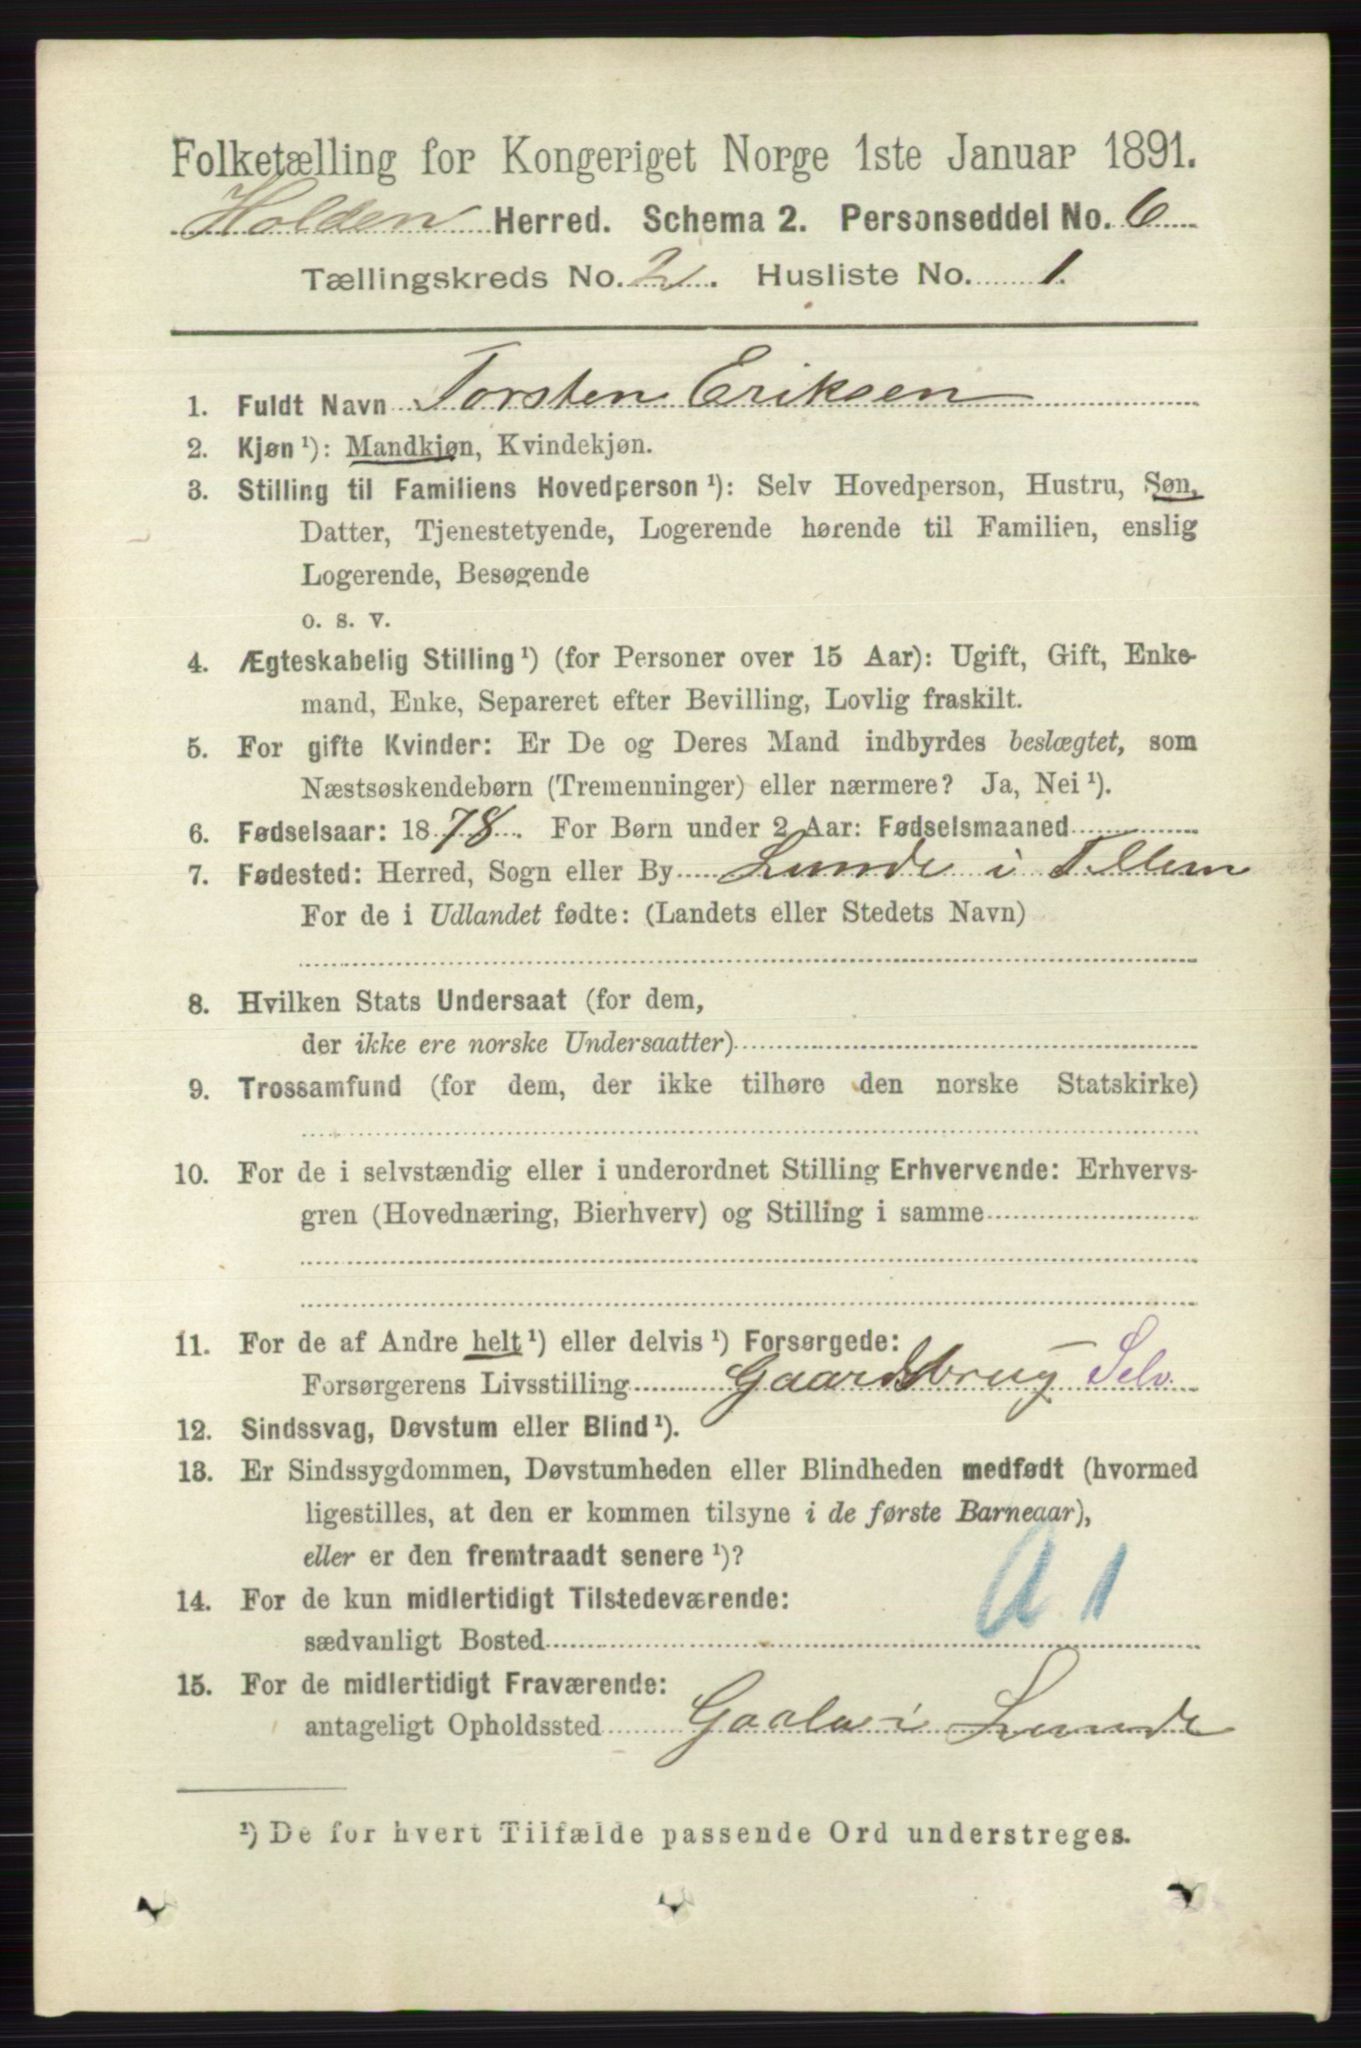 Folketælling for Kongeriget Norge 1ste Januar 1891.
Holden Herred. Schema 2. Personseddel No. 6
Tællingskreds No. 2. Husliste No. 1.
1. Fuldt Navn Torsten Eriksen
2. Kjøn ¹): Mandkjøn, Kvindekjøn.
3. Stilling til Familiens Hovedperson ¹): Selv Hovedperson, Hustru, Søn,
Datter, Tjenestetyende, Logerende hørende til Familien, enslig
Logerende, Besøgende
o. s. v.
4. Ægteskabelig Stilling ¹) (for Personer over 15 Aar): Ugift, Gift, Enke-
mand, Enke, Separeret efter Bevilling, Lovlig fraskilt.
5. For gifte Kvinder: Er De og Deres Mand indbyrdes beslægtet, som
Næstsøskendebørn (Tremenninger) eller nærmere? Ja, Nei ¹).
6. Fødselsaar: 1878. For Børn under 2 Aar: Fødselsmaaned
7. Fødested: Herred, Sogn eller By Lunde i
For de i Udlandet fødte: (Landets eller Stedets Navn)
8. Hvilken Stats Undersaat (for dem,
der ikke ere norske Undersaatter)
9. Trossamfund (for dem, der ikke tilhøre den norske Statskirke)
10. For de i selvstændig eller i underordnet Stilling Erhvervende: Erhvervs-
gren (Hovednæring, Bierhverv) og Stilling i samme
11. For de af Andre helt ¹) eller delvis ¹) Forsørgede:
Forsørgerens Livsstilling Gaardsbrug Selv.
12. Sindssvag, Døvstum eller Blind ¹).
13. Er Sindssygdommen, Døvstumheden eller Blindheden medfødt (hvormed
ligestilles, at den er kommen tilsyne i de første Barneaar),
eller er den fremtraadt senere ¹)?
a 1
14. For de kun midlertidigt Tilstedeværende:
sædvanligt Bosted
15. For de midlertidigt Fraværende:
antageligt Opholdssted i Lunde
¹) De for hvert Tilfælde passende Ord understreges.